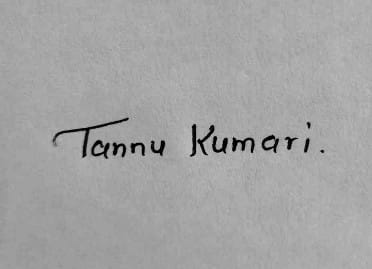 Tannu Kumari.